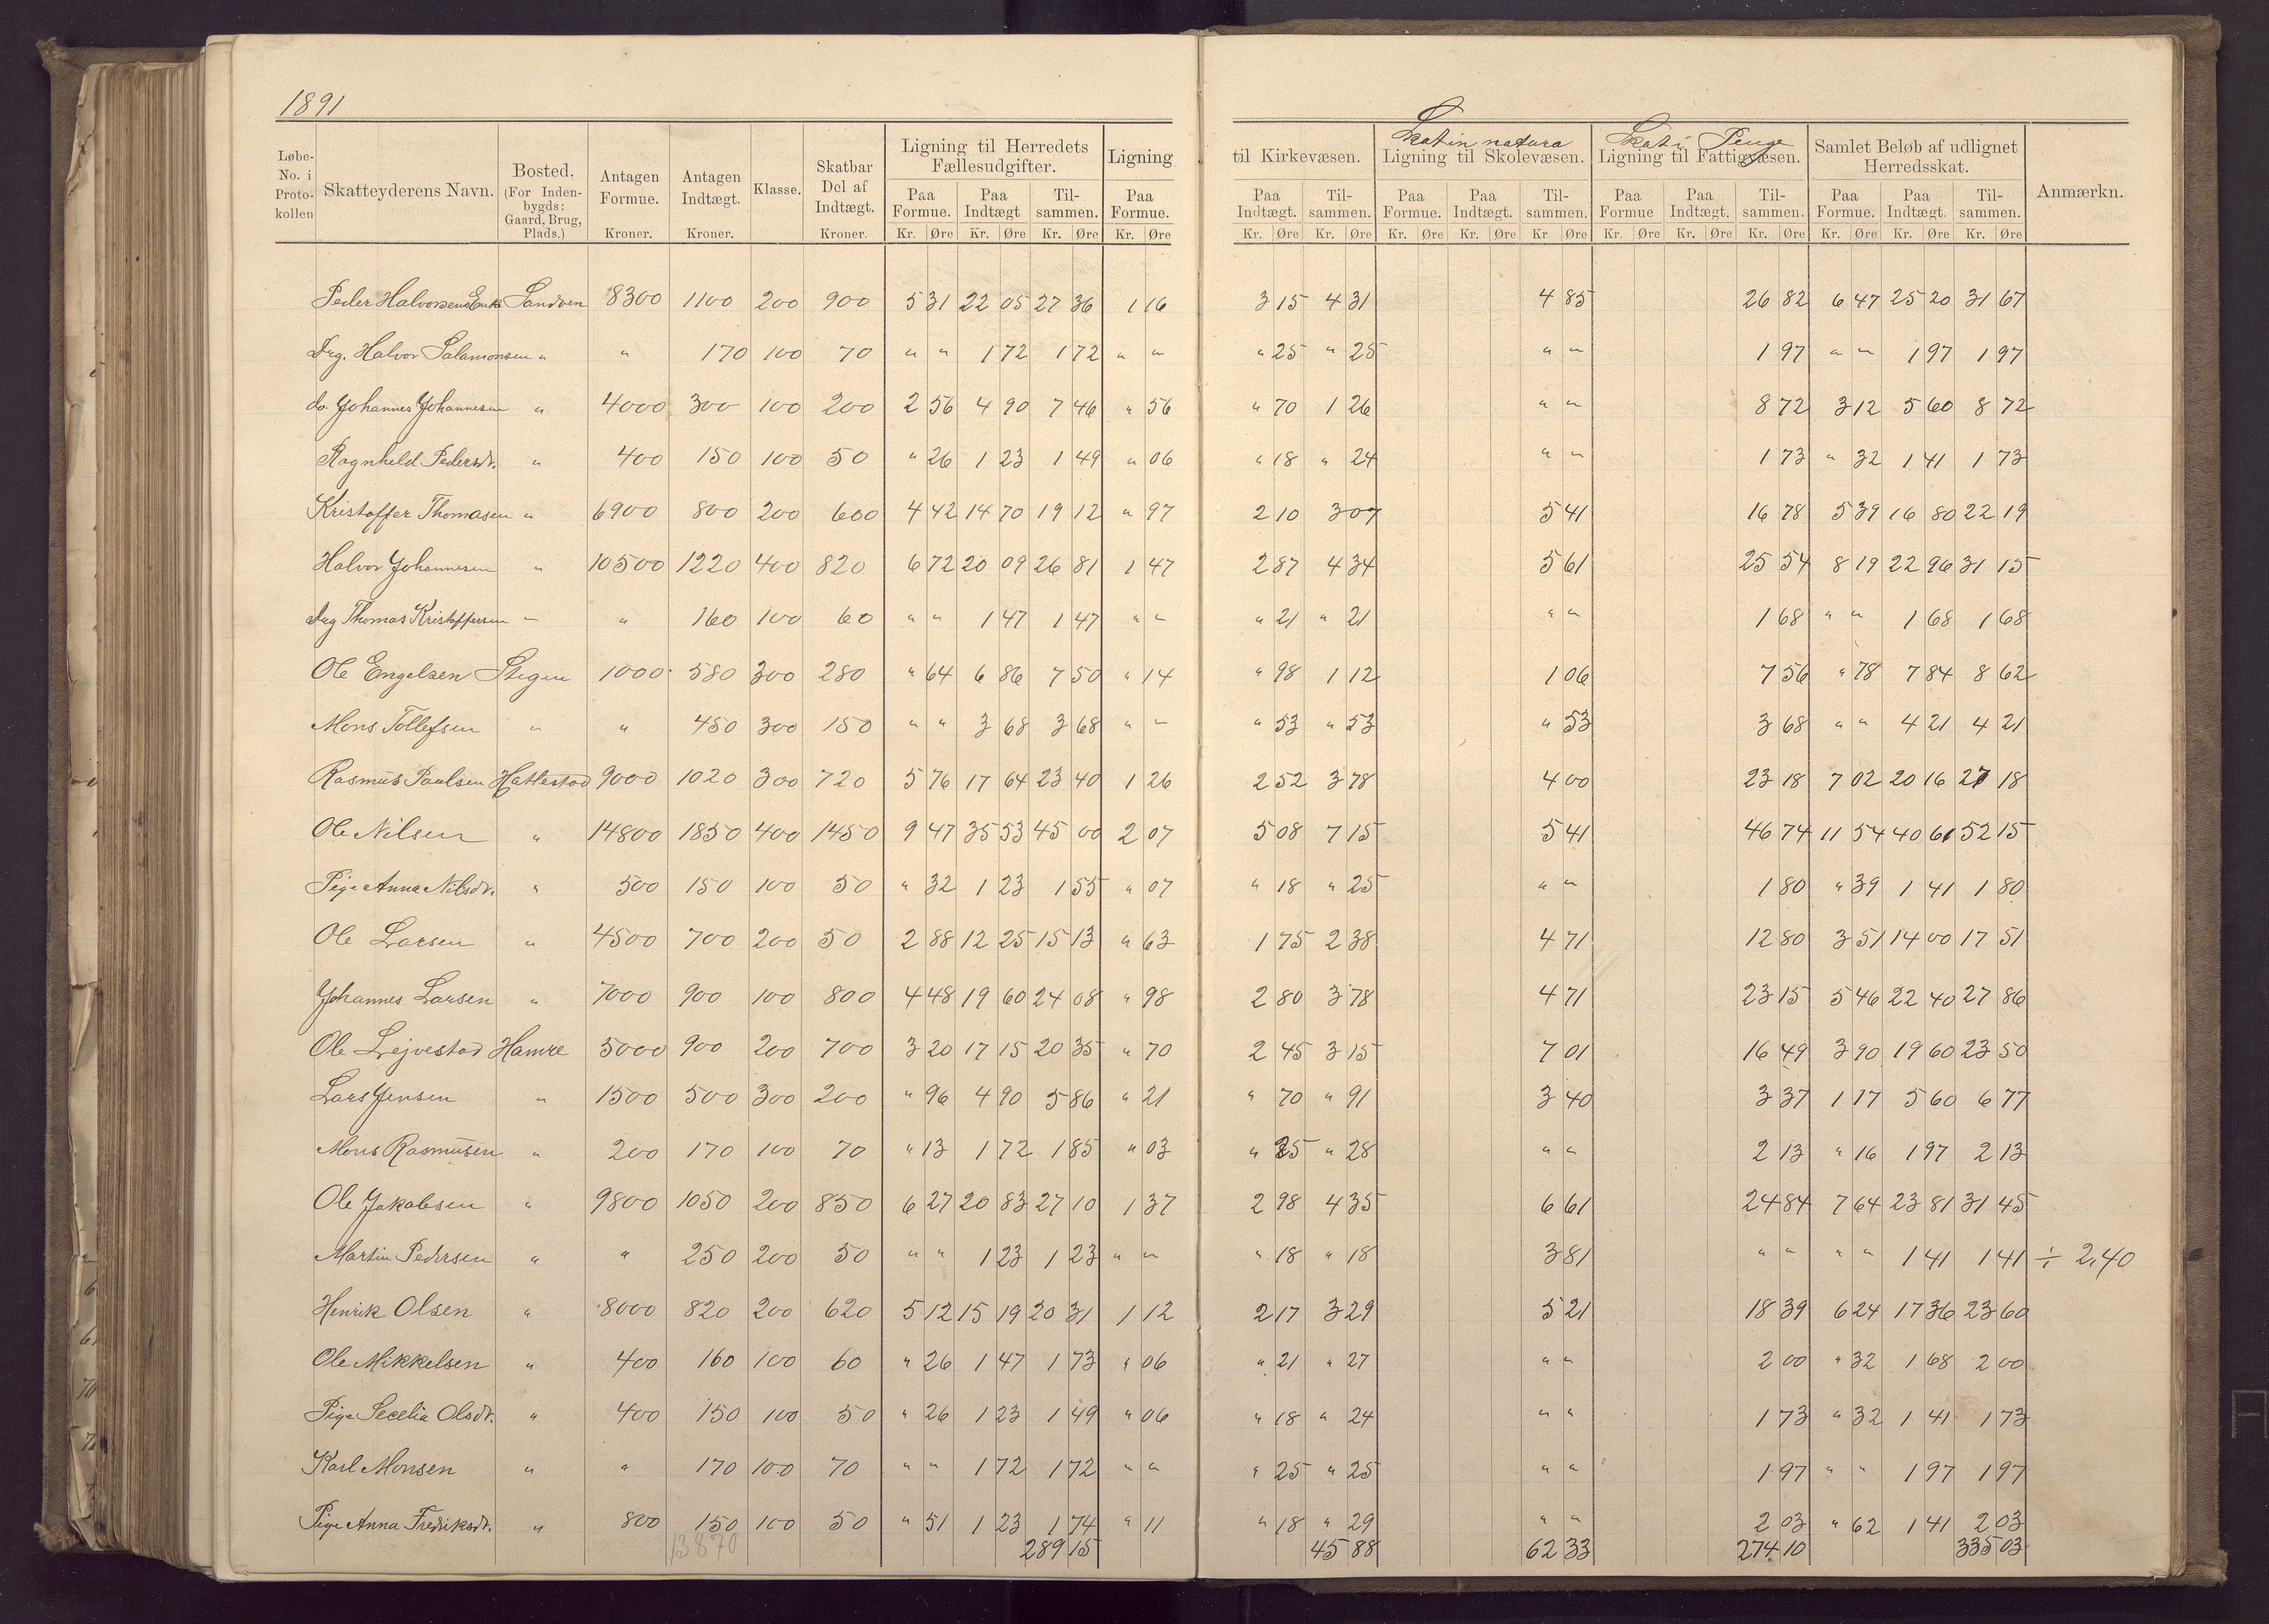 1891
Løbe-No. i Proto-kollen | Skatteyderens Navn. | Bosted. (For Inden-bygds: Gaard, Brug, Plads.) | Antagen Formue. Kroner. | Antagen Indtægt. Kroner. | Klasse. | Skatbar Del af Indtægt. Kroner. | Ligning til Herredets Fællesudgifter. Paa Formue. Kr. Øre | Paa Indtægt Kr. Øre | Til-sammen. Kr. Øre | Ligning Paa Formue. Kr. Øre | til Kirkevæsen. Paa Indtægt. Kr. Øre | Til-sammen. Kr. Øre | Skat in natura Ligning til Skolevæsen. Paa Formue. Kr. Øre | Paa Indtægt. Kr. Øre | Til-sammen. Kr Øre | Skat i Penge Ligning til Fattigvæsen. Paa Formue Kr. Øre | Paa Indtægt. Kr. Øre | Til-sammen. Kr. Øre | Samlet Beløb af udlignet Herredsskat. Paa Formue. Kr. Øre | Paa Indtægt. Kr. Øre | Til-sammen. Kr. Øre | Anmærkn.
Peder Halvorsens Enke Sandven 8300 1100 200 900 5 31 22 05 27 36 1 16 3 15 4 31 4 85 26 82 6 47 25 20 31 67
Drg. Halvor Salamonsen " " 170 100 70 " " 1 72 1 72 " " " 25 " 25 " " 1 97 " " 1 97 1 97
do. Johannes Johannesen " 4000 300 100 200 2 56 4 90 7 46 " 56 " 70 1 26 " " 8 72 3 12 5 60 8 72
Ragnheld Pedersdr. " 400 150 100 50 " 26 1 23 1 49 " 06 " 18 " 24 " " 1 73 " 32 1 41 1 73
Kristoffer Thomasen " 6900 800 200 600 4 42 14 70 19 12 " 97 2 10 3 07 5 41 16 78 5 39 16 80 22 19
Halvor Johannesen " 10500 1220 400 820 6 72 20 09 26 81 1 47 2 87 4 34 5 61 25 54 8 19 22 96 31 15
Drg Thomas Kristoffersen " " 160 100 60 " " 1 47 1 47 " " " 21 " 21 " " 1 68 " " 1 68 1 68
Ole Engelsen Stegen 1000 580 300 280 " 64 6 86 7 50 " 14 " 98 1 12 1 06 7 56 " 78 7 84 8 62
Mons Tollefsen " " 450 300 150 " " 3 68 3 68 " " " 53 " 53 " 53 3 68 " " 4 21 4 21
Rasmus Paulsen Hattestad 9000 1020 300 720 5 76 17 64 23 40 1 26 2 52 3 78 4 00 23 18 7 02 20 16 27 18
Ole Nilsen " 14800 1850 400 1450 9 47 35 53 45 00 2 07 5 08 7 15 5 41 46 74 11 54 40 61 52 15
Pige Anna Nilsdr. " 500 150 100 50 " 32 1 23 1 55 " 07 " 18 " 25 " " 1 80 " 39 1 41 1 80
Ole Larsen " 4500 700 200 50 2 88 12 25 15 13 " 63 1 75 2 38 4 71 12 80 3 51 14 00 17 51
Johannes Larsen " 7000 900 100 800 4 48 19 60 24 08 " 98 2 80 3 78 4 71 23 15 5 46 22 40 27 86
Ole Lejvestad Hamre 5000 900 200 700 3 20 17 15 20 35 " 70 2 45 3 15 7 01 16 49 3 90 19 60 23 50
Lars Jensen " 1500 500 300 200 " 96 4 90 5 86 " 21 " 70 " 91 3 40 3 37 1 17 5 60 6 77
Mons Rasmusen " 200 170 100 70 " 13 1 72 1 85 " 03 " 25 " 28 " " 2 13 " 16 1 97 2 13
Ole Jakobsen " 9800 1050 200 850 6 27 20 83 27 10 1 37 2 98 4 35 6 61 24 84 7 64 23 81 31 45
Martin Pedersen " " 250 200 50 " " 1 23 1 23 " " " 18 " 18 3 81 " " " " 1 41 1 41 ÷ 2,40
Henrik Olsen " 8000 820 200 620 5 12 15 19 20 31 1 12 2 17 3 29 5 21 18 39 6 24 17 36 23 60
Ole Mikkelsen " 400 160 100 60 " 26 1 47 1 73 " 06 " 21 " 27 " " 2 00 " 32 1 68 2 00
Pige Secelia Olsdr. " 400 150 100 50 " 26 1 23 1 49 " 06 " 18 " 24 " " 1 73 " 32 1 41 1 73
Karl Monsen " " 170 100 70 " " 1 72 1 72 " " " 25 " 25 " " 1 97 " " 1 97 1 97
Pige Anna Fredriksdr. " 800 150 100 50 " 51 1 23 1 74 " 11 " 18 " 29 " " 2 03 " 62 1 41 2 03
13870 289 15 45 88 62 33 274 10 335 03